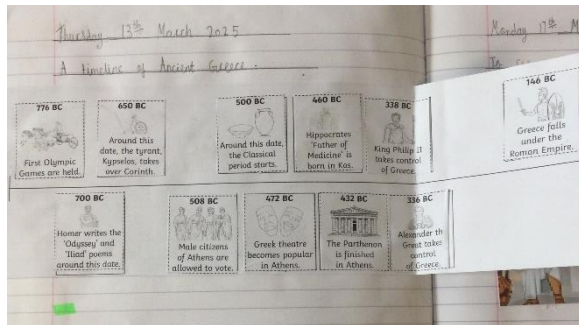 Thursday 13th March 2025
Monday 17th M
A timeline of Ancient Greece.
776 BC
First Olympic
Games are held.
650 BC
Around this
date, the tyrant,
Kypselos, takes
over Corinth.
500 BC
Around this date,
the Classical
period starts.
460 BC
Hippocrates
'Father of
Medicine' is
born in Kos.
338 BC
King Philip II
takes control
of Greece.
146 BC
Greece falls
under the
Roman Empire.
700 BC
Homer writes the
'Odyssey' and
'Iliad' poems
around this date.
508 BC
Male citizens
of Athens are
allowed to vote.
472 BC
Greek theatre
becomes popular
in Athens.
432 BC
The Parthenon
is finished
in Athens.
336 BC
Alexander th
Great takes
control
of Greece.